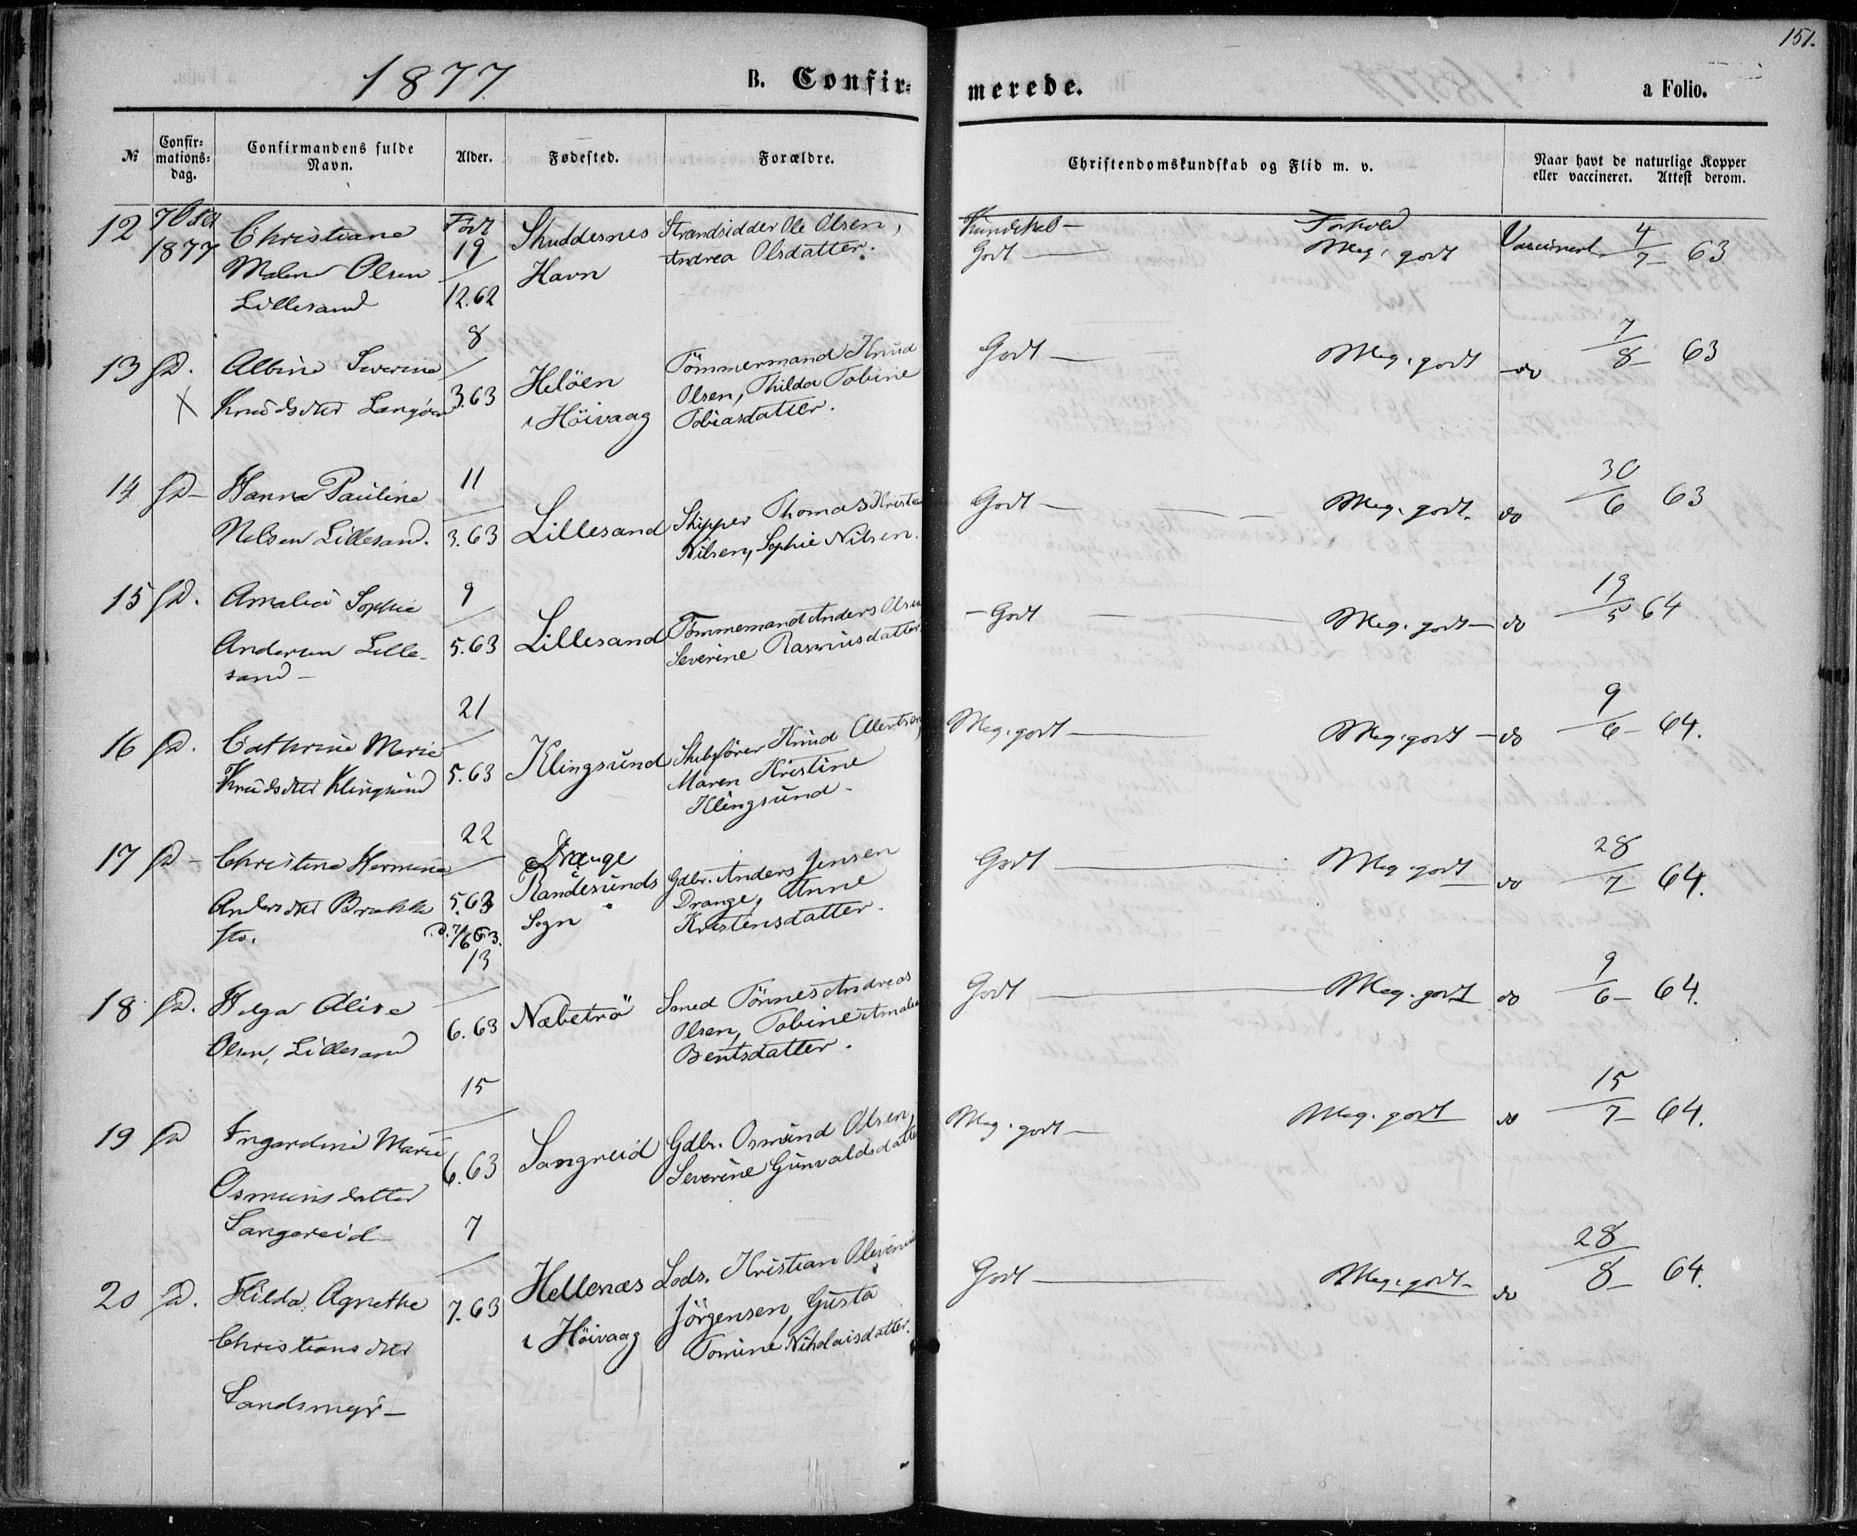 151.
1877 B. Confir=
merede. a Folio.
№ Confir=mations=dag. Confirmandens fulde Navn. Alder. Fødested. Forældre. Christendomskundskab og Flid m. v. Naar havt de naturlige Kopper eller vaccineret. Attest derom.
12 7 Oct Christiane Født Skuddesnes Strandsidder Ole Olsen, Kundskab – Forhold
1877 Malene Olsen 19/12.62 Havn Andrea Olsdatter. Godt — Meg. godt Vaccineret 4/7 – 63
Lillesand
13 Do. Albine Severine 8/3.63 Helöen Tömmermand Knud Godt — Meg. godt – do 7/8 – 63
X Knudsdtter Langöen i Höivaag Olsen, Thilda Tobine
Tobiasdatter.
14 Do – Hanna Pauline 11/3.63 Lillesand Skipper Thomas Kristian Godt — Meg. godt. do 30/6 63
Nelsen Lillesand. Nilsen, Sophie Nilsen.
15 Do. Amalia Sophie 9/5.63 Lillesand Tømmemand Anders Olsen – Godt — Meg. godt – do 19/5 64
Andersen Lille- Severine Rasmusdatter
sand –
16 Do. Cathrine Marie 21/5.63 Klingsund Skibsförer Knud Ellertsen, Meg. godt — Meg. godt – do 9/6 – 64.
Knudsdtter Klingsund Maren Kristine
Klingsund –
17 Do – Christine Hermine 22/5.63 Drange Gdbr. Anders Jensen Godt — Meg. godt do 28/7 64.
Andersdtter Brække Randesunds Drange, Anne
sto. D. 7/6 63. Sogn Kristensdatter.
18 Do. Helga Elise 13/6.63 Næbetrö Smed Tönnes Andreas Godt — Meg. godt do 9/6 – 64.
Olsen, Lillesand Olsen, Tobine Amalia
Bentsdatter.
19 Do Ingardine Marie 15/6.63 Sangreid Gdbr. Osmund Olsen, Meg. godt — Meg. godt do 15/7 – 64.
Osmunsdatter Severine Gunvaldsdatter
Sangereid
20 Do. Hilda Agnethe 7/7.63 Hellenæs Lods. Kristian Godt — Meg. godt – do 28/8 – 64.
Christiansdtter i Höivaag Jörgensen, Gusta
Sandsmyr – Tomine Nikolaisdatter.